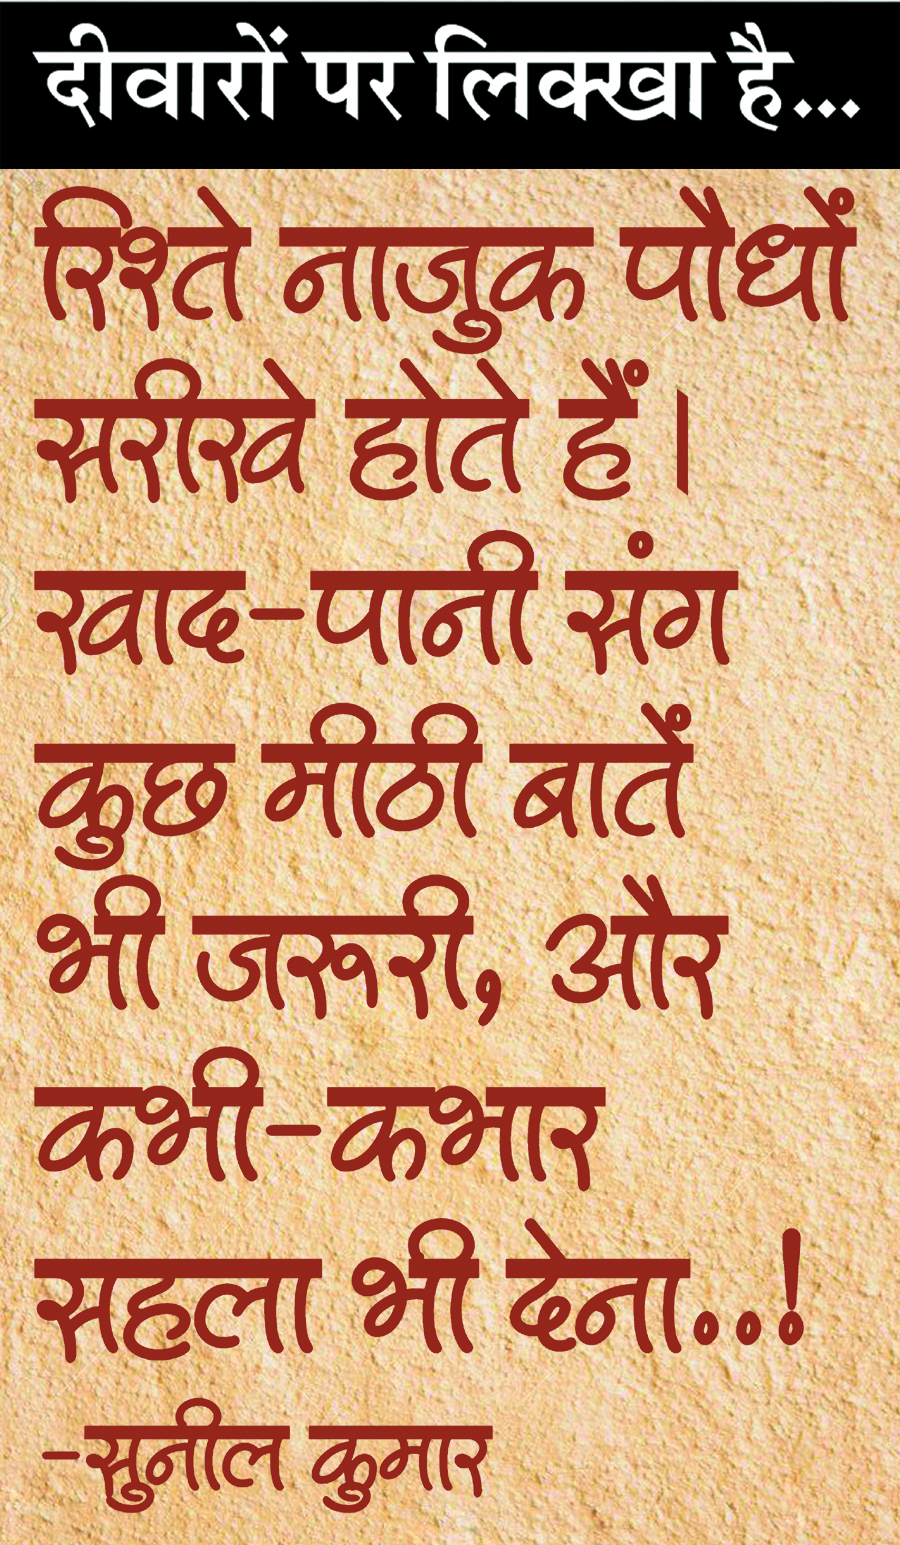 दीवारों पर लिक्खा है...
रिश्ते नाजुक पौधों
सरीखे होते हैं।
खाद-पानी संग
कुछ मीठी बातें
भी जरूरी, और
कभी-कभार
सहला भी देना..!
-सुनील कुमार